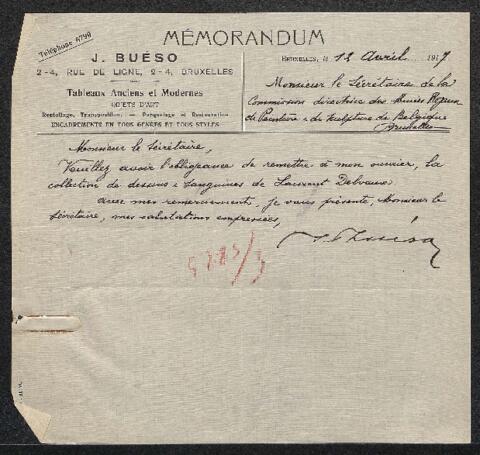 Téléphone 4799
MÉMORANDUM
J. BUÉSO
2-4, RUE DE LIGNE, 2-4, BRUXELLES
Tableaux Anciens et Modernes
OBJETS D'ART
Rentoilage, Transposition, — Parquetage et Restauration
ENCADREMENTS EN TOUS GENRES ET TOUS STYLES
BRUXELLES, le 12 Avril 1917
Monsieur le Sécrétaire de la
Commission directrice des Musées Royaux
de Peinture & de Sculpture de Belgique
Bruxelles
Monsieur le Sécrétaire,
Veuillez avoir l'obligeance de remettre à mon ouvrier, la
collection de dessins & sanguines de Laurent Delvaux
avec mes remerciements, je vous présente, Monsieur le
Sécrétaire, mes salutations empressées,